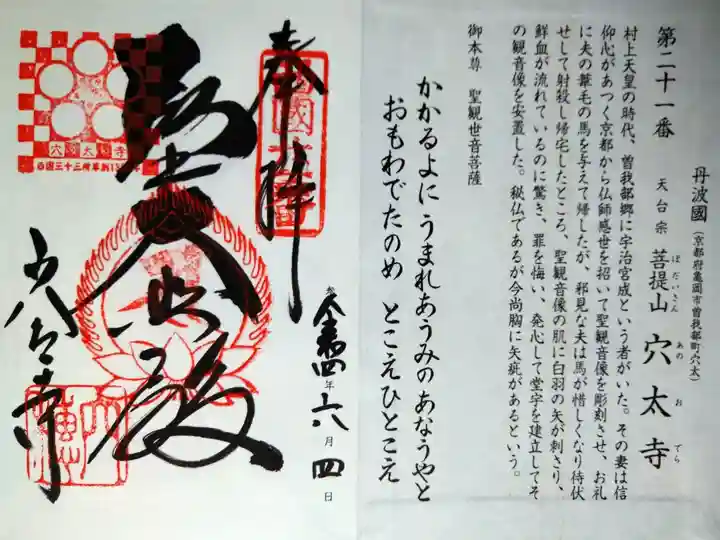 丹波國（京都府亀岡市曽我部町穴太）
第二十一番　天台宗　菩提山　穴太寺
ぼだいさん　あのおでら
村上天皇の時代、曽我部郷に宇治宮成という者がいた。その妻は信
仰心があつく京都から仏師感世を招いて聖観音像を彫刻させ、お礼
に夫の葦毛の馬を与えて帰したが、邪見な夫は馬が惜しくなり待伏
せして射殺し帰宅したところ、聖観音像の肌に白羽の矢が刺さり、
鮮血が流れているのに驚き、罪を悔い、発心して堂宇を建立してそ
の観音像を安置した。秘仏であるが今尚胸に矢疵があるという。
御本尊　聖観世音菩薩
かかるよに うまれあうみの あなうやと
おもわでたのめ とこえひとこえ
奉拝
令和四年六月四日
穴太寺
西国三十三所草創1300年
穴太寺